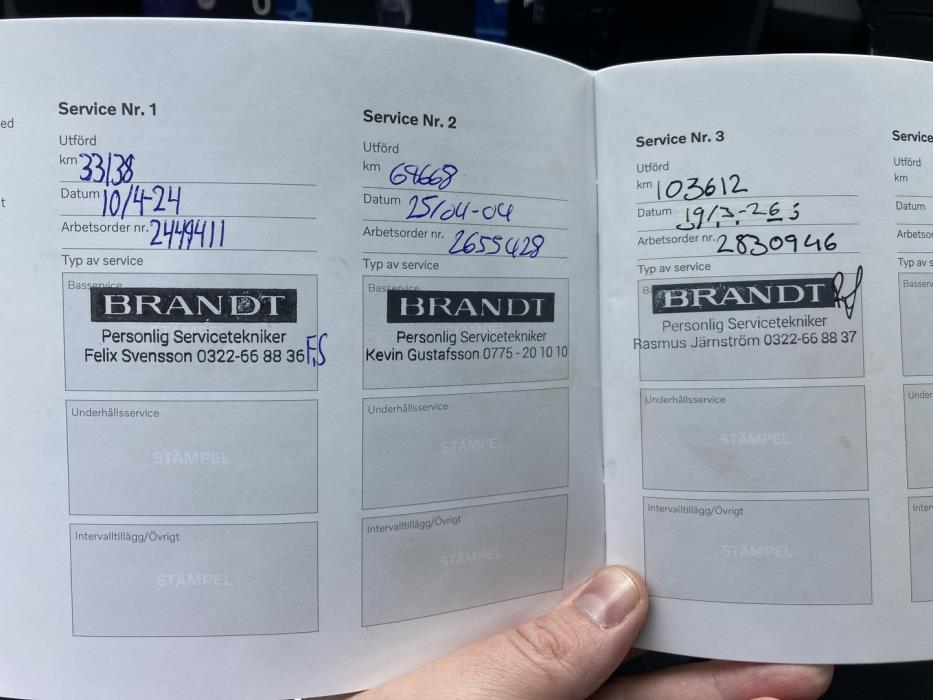 ed
t
Service Nr. 1
Utförd
km 33138
Datum 10/4-24
Arbetsorder nr. 2449411
Typ av service
Basservice
BRANDT
Personlig Servicetekniker
Felix Svensson 0322-66 88 36 F,S
Underhållsservice
STÄMPEL
Intervalltillägg/Övrigt
STÄMPEL
Service Nr. 2
Utförd
km 68668
Datum 25/04-04
Arbetsorder nr. 2655428
Typ av service
Basservice
BRANDT
Personlig Servicetekniker
Kevin Gustafsson 0775-20 10 10
Underhållsservice
STÄMPEL
Intervalltillägg/Övrigt
STÄMPEL
Service Nr. 3
Utförd
km 103612
Datum
Arbetsorder nr. 2830946
Typ av service
BRANDT
Personlig Servicetekniker
Rasmus Järnström 0322-66 88 37
Underhållsservice
STÄMPEL
Intervalltillägg/Övrigt
STÄMPEL
Service
Utförd
km
Datum
Arbetsor
Typ av s
Basserv
Under
Inter